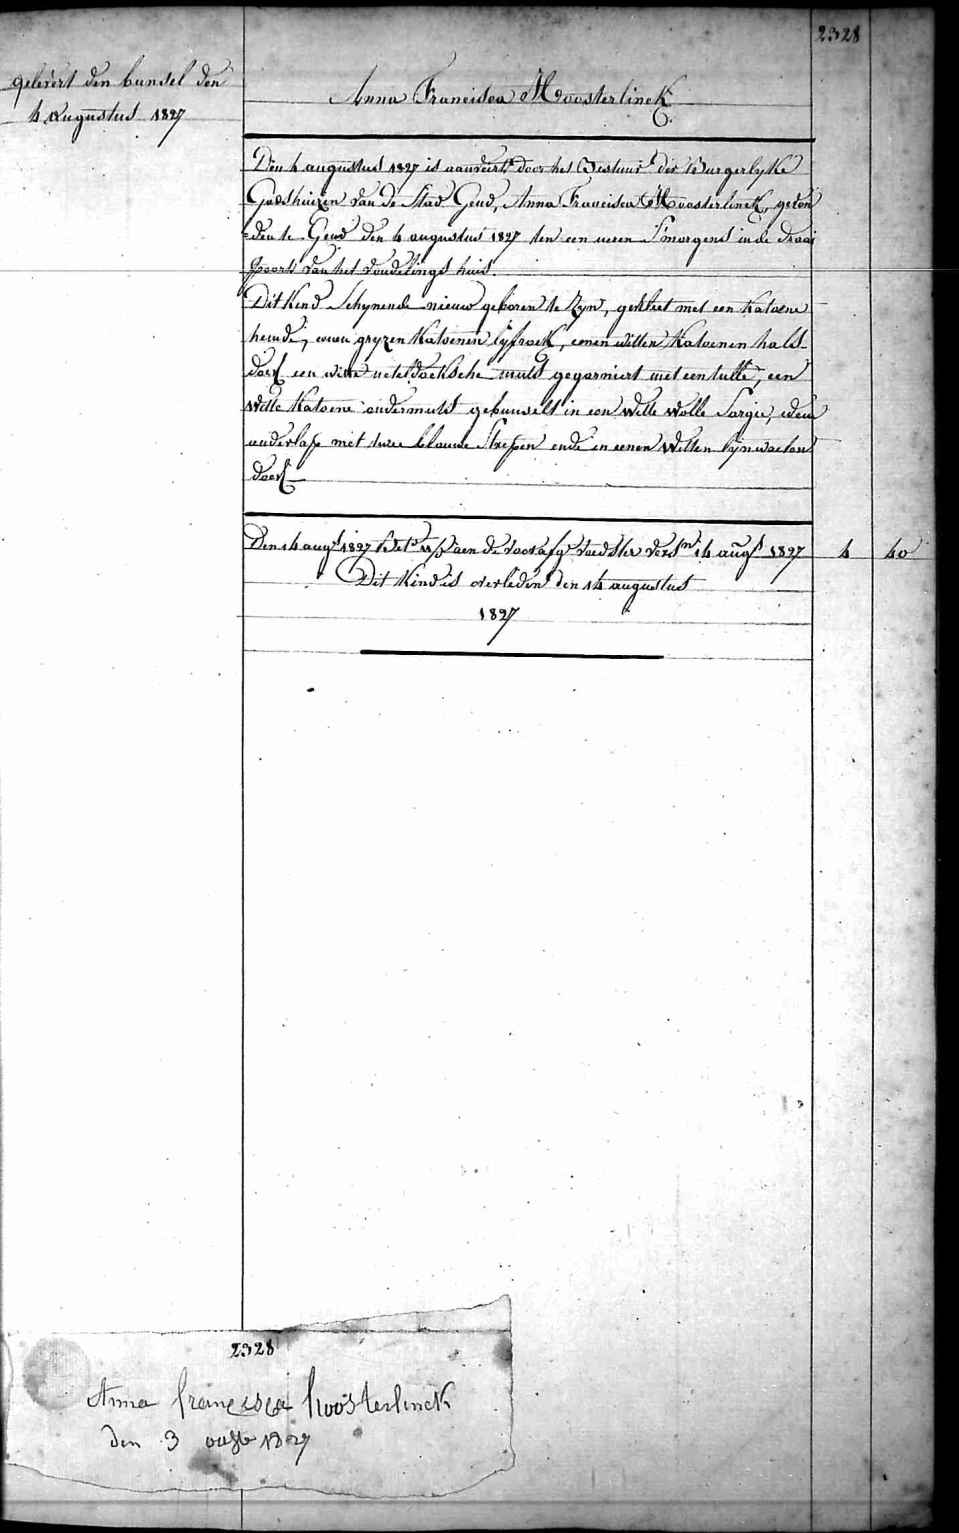 2328
gelevert den bunsel den
4 Augustus 1827
Anna Francisca Hoosterlinck
Den 4 augustus 1827 is aanveert door het Bestuur der Burgerlyke
Godshuizen van de Stad Gend, Anna Francisca Hoosterlinck, gevon
=den te Gend den 4 augustus 1827 ten een ueren S'morgens in de draai
poorte van het vondelings huis.
Dit Kind Schynende nieuw geboren te Zyn, gekleet met een Katoene
hemde, eenen gryzen Katoenen lyfrock, eenen witten Katoenen hals-
doek een witte neteldoeksche muts gegarniert met een tulle, een
Witte Katoene ondermuts gebunselt in een Witte Wolle Sargie,
met twee blauwe Strepen ende in eenen Witten lynwaeten
doek
Den 14 augs 1827 aen de voorafg. voedster 14 augs 1827 4 40
Dit Kind is overleden den 14 augustus
1827
2328
Anna francisca hoosterlinck
den 3 1827